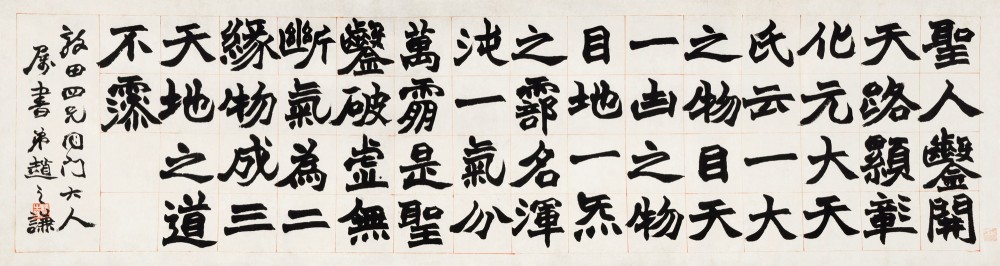 聖人鑿開
天路顯彰
化元大天
氏云一大
之物目天
一凷之物
目地一炁
之名渾
沌一氣分
萬是聖
鑿破虛無
斷氣為二
緣物成三
天地之道
不
四兄同門大人
屬書弟趙之謙